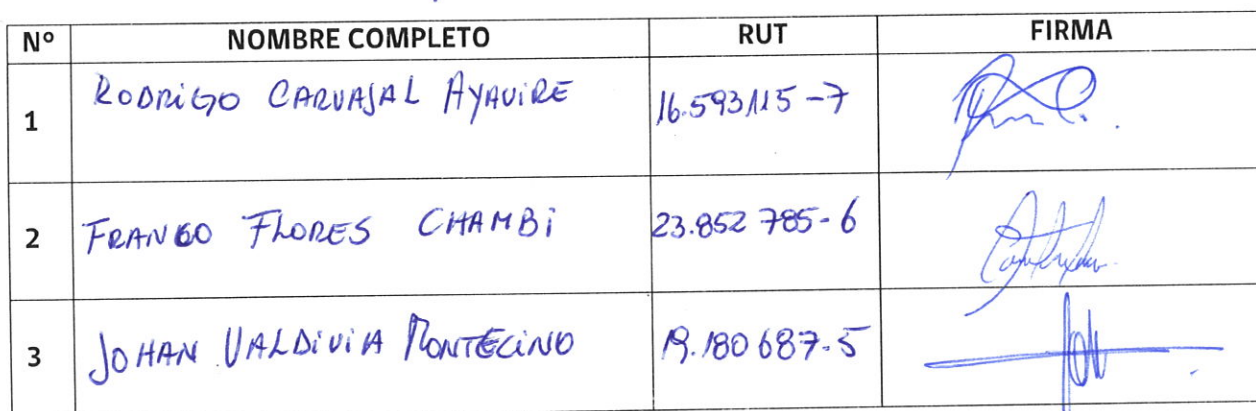 Nº NOMBRE COMPLETO RUT FIRMA
1 RODRIGO CARVAJAL AYAVIRE 16.593.115-7
2 FRANCO FLORES CHAMBI 23.852 785-6
3 JOHAN VALDIVIA MONTECINO 19.180 687-5